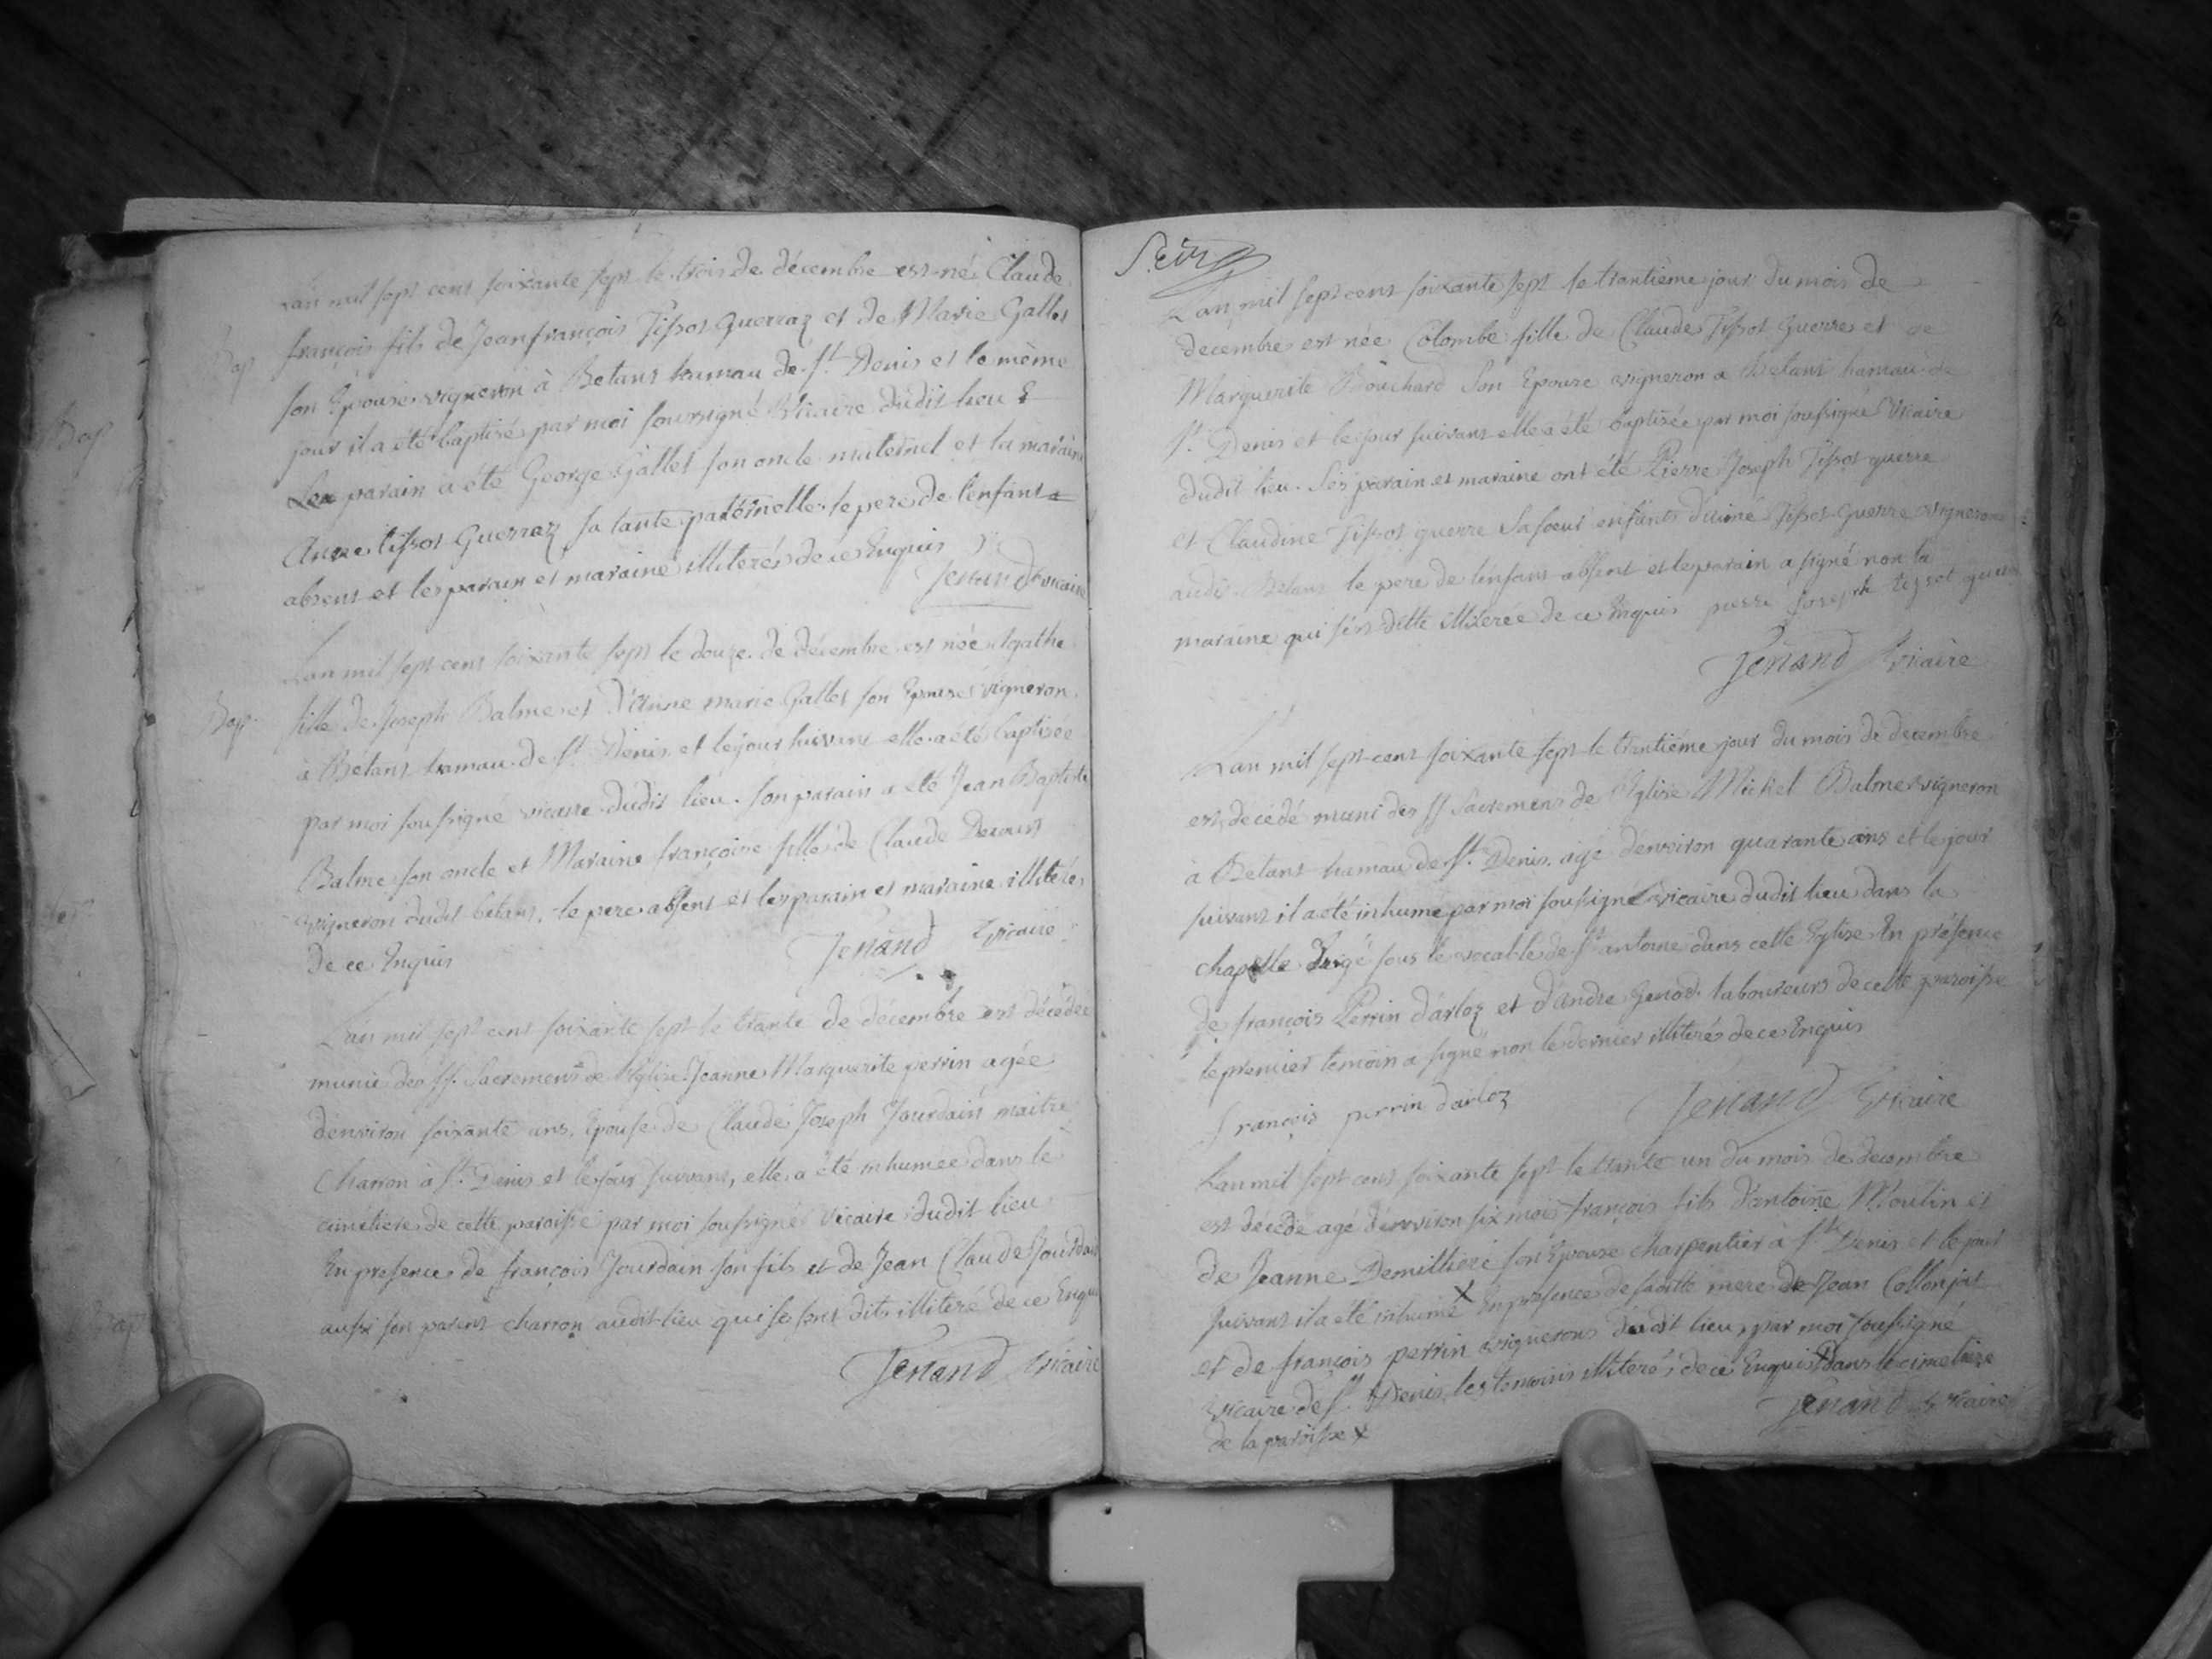 Bap
L'an mil sept cent soixante sept le trois de décembre est né Claude
françois fils de Jeanfrançois Tissot Guerraz et de Marie Gallet
son Epouse vigneron à Betans hamau de St. Denis et le même
jour il a été baptisé par moi soussigné Vicaire dudit lieu
parain a été George Gallet son oncle maternel et la maraine
Anne tissot Guerraz sa tante paternelle le pere de l'enfant
absent et les parain et maraine illiterés de ce Enquis
Jenand vicaire
Bap.
L'an mil sept cent soixante sept le douze de décembre est née Agathe
fille de Joseph Balme et d'Anne marie Gallet son Epouse vigneron
à Betans hamau de St. Denis et le jour suivant elle a été baptisée
par moi soussigné vicaire dudit lieu. son parain a été Jean Baptiste
Balme son oncle et Maraine françoise fille de Claude
vigneron dudit betans, le pere absent et les parain et maraine illiterés
de ce Enquis
Jenand Vicaire
L'an mil sept cent soixante sept le trante de décembre est décédée
munie des SS. Sacremens de l'Eglise Jeanne Marguerite perrin agée
d'environ soixante ans, Epouse de Claude Joseph Jourdain maitre
Charron à St. Denis et le jour suivant, elle a été inhumée dans le
cimetiere de cette paroisse par moi soussigné Vicaire dudit lieu
En presence de françois Jourdain son fils et de Jean Claude Jourdain
aussi son parent charron audit lieu qui se sont dits illiteré de ce Enquis
Jenand Vicaire
L'an mil sept cent soixante sept le trantième jour du mois de
decembre est née Colombe fille de Claude Tissot Guerre et de
Marguerite Bouchard son Epouse vigneron a Betans hamau de
St. Denis et le jour suivant elle a été baptisée par moi soussigné Vicaire
dudit lieu. Ses parain et maraine ont été Pierre Joseph Tissot guerre
et Claudine Tissot guerre sa soeur enfants d'aimé Tissot Guerre vigneron
audit Betans le pere de l'enfant absent et le parain a signé non la
maraine qui s'est ditte illiterée de ce Enquis pierre Joseph tissot guerre
Jenand Vicaire
L'an mil sept cent soixante sept le trantième jour du mois de decembre
est décédé muni des SS Sacremens de l'Eglise Michel Balme vigneron
à Betans hamau de St. Denis, agé d'environ quarante ans et le jour
suivant il a été inhumé par moi soussigné Vicaire dudit lieu dans la
chapelle Erigé sous le vocable de St antoine dans cette Eglise En présence
de françois Perrin d'arloz et d'Andre Jenod laboureurs de cette paroisse
le premier temoin a signé non le dernier illiterés de ce Enquis
François perrin darloz
Jenand Vicaire
L'an mil sept cent soixante sept le trante un du mois de decembre
est décédé agé d'environ six mois françois fils d'antoine Moulin et
de Jeanne Demilliere son Epouse charpentier à St. Denis et le jour
suivant il a été inhumé x En presence de saditte mere de Jean Collonjat
et de françois perrin vignerons dudit lieu, par moi soussigné
vicaire de St. Denis, les temoins illiterés de ce Enquis x dans le cimetiere
de la paroisse x
Jenand Vicaire